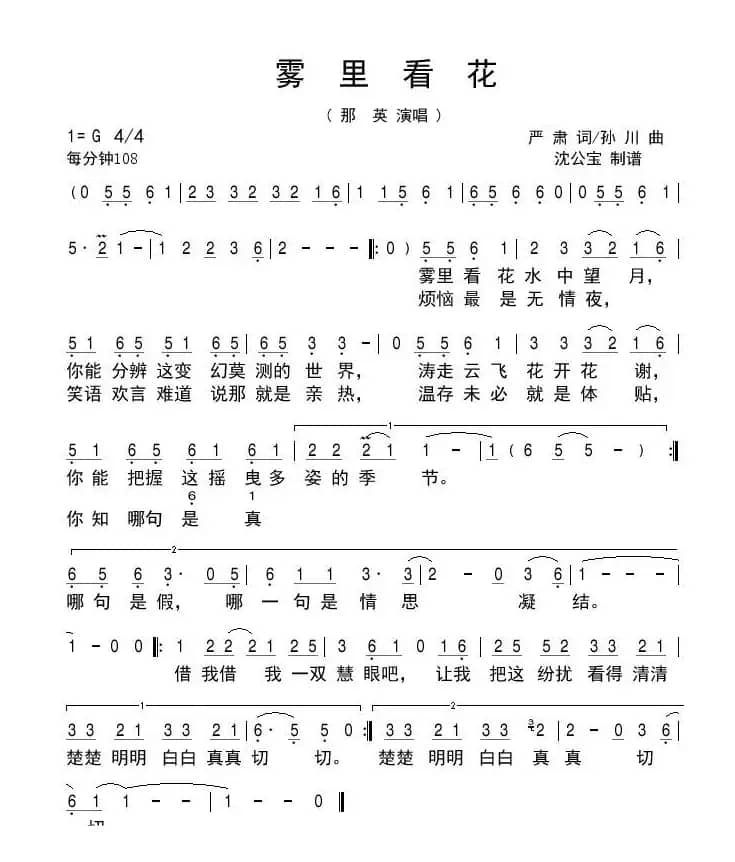 雾 里 看 花
( 那 英 演唱 )
1= G 4/4
严 肃 词/孙 川 曲
每分钟108
沈公宝 制谱
(0 5 5 6 1 | 2 3 3 2 3 2 1 6 | 1 1 5 6 1 | 6 5 6 5 6 0 | 0 5 5 6 1 |
5· 2 1 - | 1 2 2 3 6 | 2 - - - ‖: 0 ) 5 5 6 1 | 2 3 3 2 1 6 |
雾里 看 花 水 中 望 月,
烦恼 最 是 无 情 夜,
5 1 6 5 5 1 6 5 | 6 5 3 3 - | 0 5 5 6 1 | 3 3 3 2 3 6 |
你能 分辨 这变 幻莫 测的 世 界, 涛走 云 飞 花 开 花 谢,
笑语 欢言 难道 说那 就是 亲 热, 温存 未 必 就 是 体 贴,
1
5 1 6 5 6 1 6 1 | 2 2 2 2 1 | 1 - 1 ( 6 5 5 - ) :‖
你 能 把握 这 摇 曳 多 姿 的 季 节。
6 1
你 知 哪句 是 真
2
6 5 6 3· 0 5 | 6 1 1 3· 3 | 2 - 0 3 6 | 5 - - -
哪 句 是 假, 哪 一 句 是 情 思 凝 结。
1 - 0 0 ‖: 1 2 2 2 1 2 5 | 3 6 1 0 1 2 | 2 5 5 2 3 2 1 |
借 我借 我 一双 慧 眼吧, 让我 把这 纷扰 看得 清清
1 2
3 3 2 1 3 3 2 1 | 6· 5 5 0 :‖ 3 3 2 1 3 3 3 2 | 2 - 0 3 6 |
楚楚 明明 白白 真真 切 切。 楚楚 明明 白白 真 真 切
6 1 1 - - | 1 - - 0 ‖
切